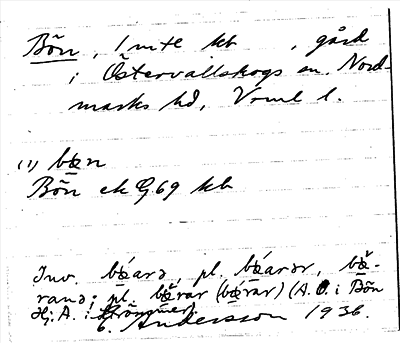 Bõn, 1 mtl kb , gård
i Östervallskogs sn. Nord-
marks hd, Vrml l.
(1) bæn
Bõn ek G69 kb
Inv. bǽarə, pl. bǽarər, bæ̌-
rana; pl. bæ̌rar (bǽrar) (A.O. i Bõn
Hj. A. i Strömmer)
E. Andersson 1936.